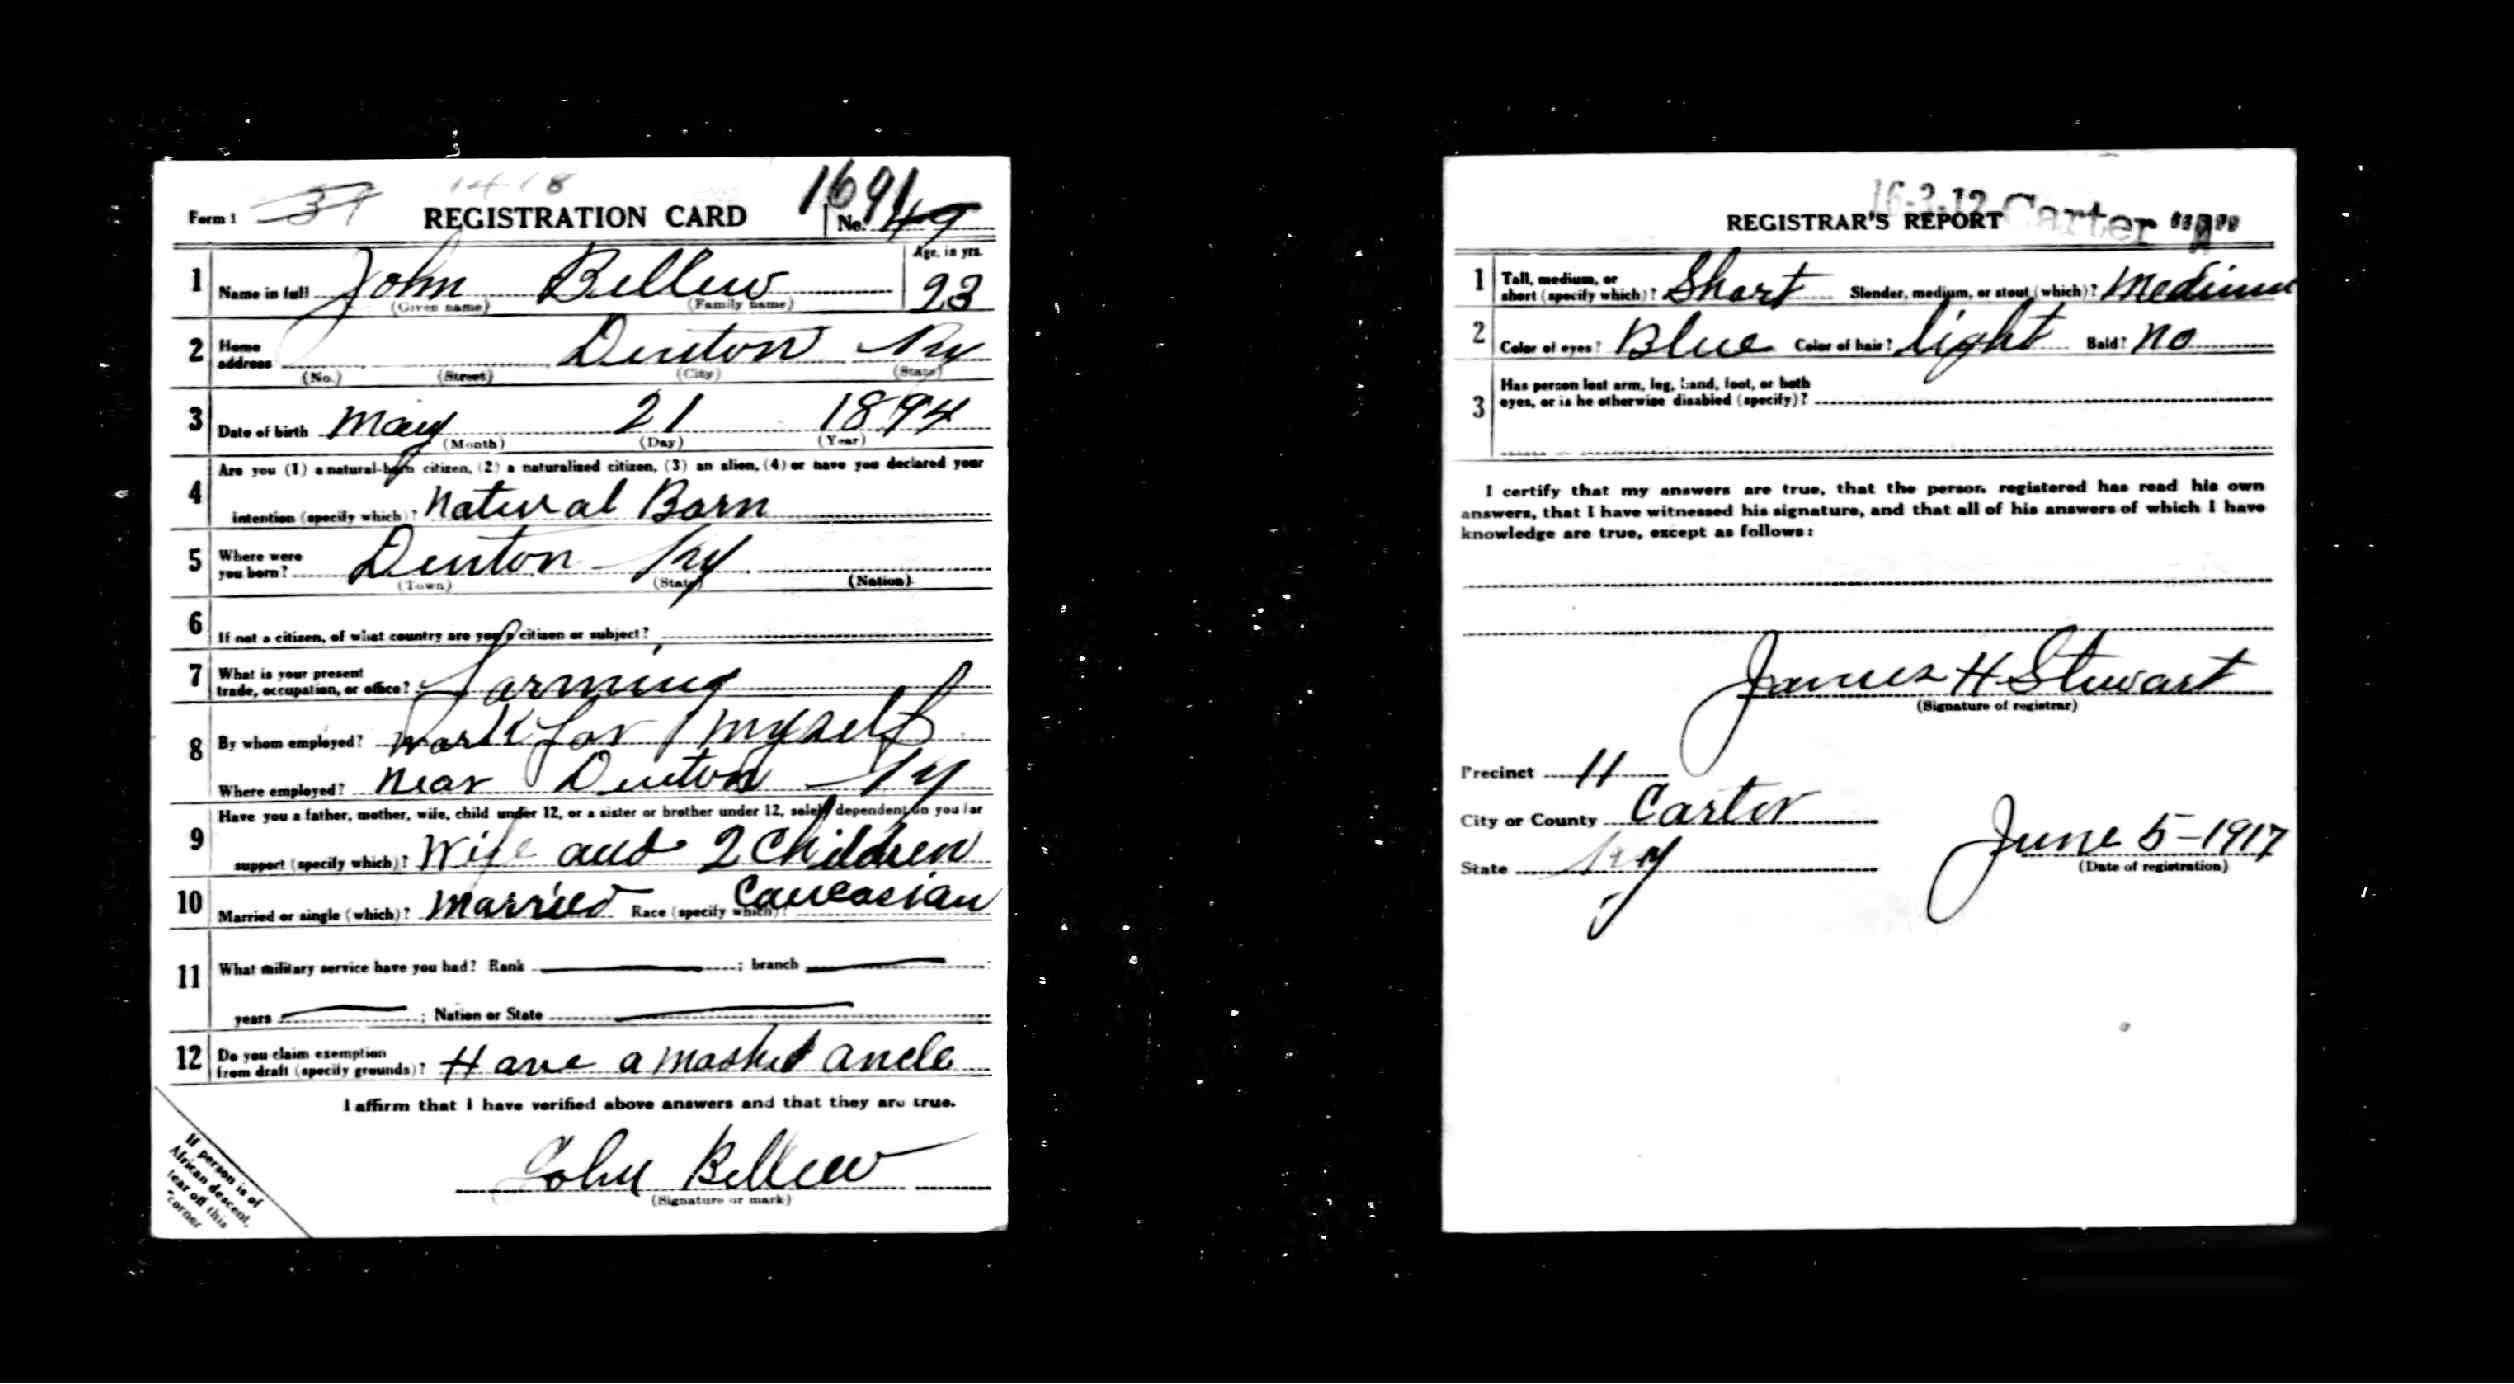 1418
Form 1 37 REGISTRATION CARD No. 1691 49
1 Name in full John Bellew Age, in yrs. 23
(Given name) (Family name)
2 Home address Denton Ky
(No.) (Street) (City) (State)
3 Date of birth May 21 1894
(Month) (Day) (Year)
4 Are you (1) a natural-born citizen, (2) a naturalized citizen, (3) an alien, (4) or have you declared your
intention (specify which)? Natural Born
5 Where were you born? Denton Ky
(Town) (State) (Nation)
6 If not a citizen, of what country are you a citizen or subject?
7 What is your present trade, occupation, or office? Farming
8 By whom employed? Work for myself
Where employed? Near Denton Ky
9 Have you a father, mother, wife, child under 12, or a sister or brother under 12, solely dependent on you for
support (specify which)? Wife and 2 Children
10 Married or single (which)? Married Race (specify which)? Caucasian
11 What military service have you had? Rank ; branch
years ; Nation or State
12 Do you claim exemption from draft (specify grounds)? Have a mashed ancle
I affirm that I have verified above answers and that they are true.
John Bellew
(Signature or mark)
If person is of
African descent,
tear off this
corner
16-3-12-Carter "A"
REGISTRAR'S REPORT
1 Tall, medium, or short (specify which)? Short Slender, medium, or stout (which)? Medium
2 Color of eyes? Blue Color of hair? light Bald? no
3 Has person lost arm, leg, hand, foot, or both
eyes, or is he otherwise disabled (specify)?
I certify that my answers are true, that the person registered has read his own
answers, that I have witnessed his signature, and that all of his answers of which I have
knowledge are true, except as follows:
James H Stewart
(Signature of registrar)
Precinct 11
City or County Carter
State Ky
June 5-1917
(Date of registration)